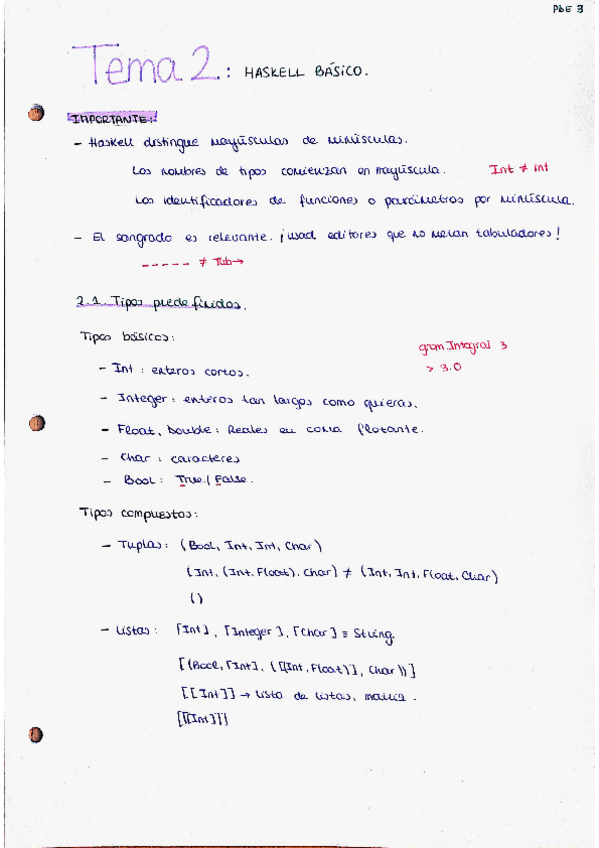 PbE 3
Tema 2.: HASKELL BÁSICO.
IMPORTANTE:
- Haskell distingue mayúsculas de minúsculas.
Los nombres de tipos comienzan en mayúscula. Int ≠ int
Los identificadores de funciones o parámetros por minúscula.
- El sangrado es relevante. ¡usad editores que no metan tabuladores!
----- ≠ Tab→
2.1. Tipos predefinidos.
Tipos básicos:
fromIntegral 3
- Int : enteros cortos.
> 3.0
- Integer : enteros tan largos como quieras.
- Float, Double : Reales en coma flotante.
- Char : caracteres
- Bool : True / False.
Tipos compuestos:
- Tuplas: (Bool, Int, Int, Char)
(Int, (Int, Float), Char) ≠ (Int, Int, Float, Char)
()
- Listas: [Int], [Integer], [Char] ≡ String.
[(Bool, [Int], ([(Int, Float)], Char))]
[[Int]] → lista de listas, matriz.
[[[Int]]]